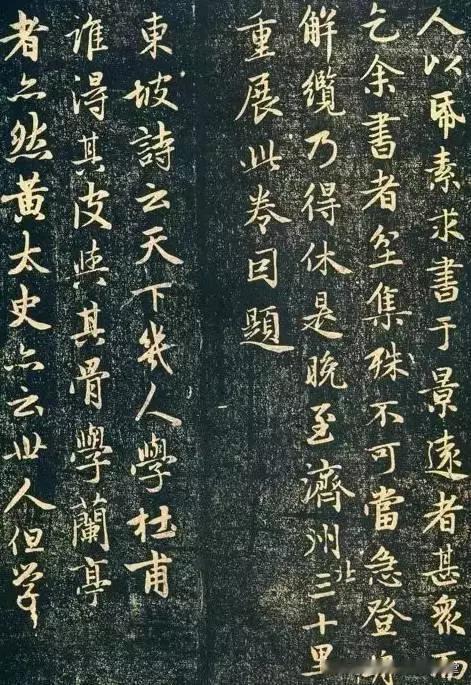 人以紙素求書于景遠者甚衆而
乞余書者坌集殊不可當急登舟
解纜乃得休是晚至濟州北三十里
重展此卷因題
東坡詩云天下幾人學杜甫
誰得其皮與其骨學蘭亭
者亦然黃太史亦云世人但學